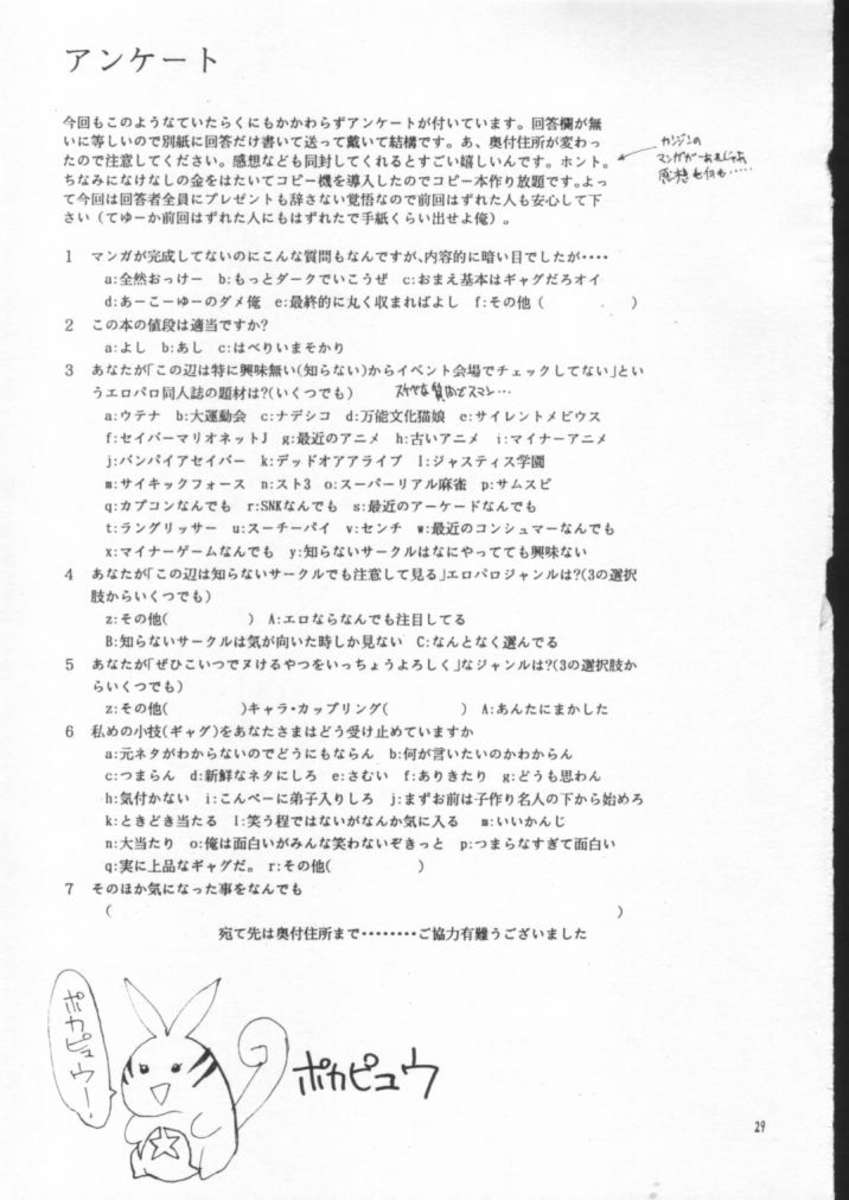 アンケート
今回もこのようなていたらくにもかかわらずアンケートが付いています。回答欄が無
いに等しいので別紙に回答だけ書いて送って戴いて結構です。あ、奥付住所が変わっ
たので注意してください。感想なども同封してくれるとすごい嬉しいんです。ホント。
ちなみになけなしの金をはたいてコピー機を導入したのでコピー本作り放題です。よっ
て今回は回答者全員にプレゼントも辞さない覚悟なので前回はずれた人も安心して下
さい（てゆーか前回はずれた人にもはずれたで手紙くらい出せよ俺）。
カンジンの
マンガがーあれじゃあ
感想も何も・・・・・
1 マンガが完成してないのにこんな質問もなんですが、内容的に暗い目でしたが・・・・
a:全然おっけー b:もっとダークでいこうぜ c:おまえ基本はギャグだろオイ
d:あーこーゆーのダメ俺 e:最終的に丸く収まればよし f:その他（ ）
2 この本の値段は適当ですか?
a:よし b:あし c:はべりいまそかり
3 あなたが「この辺は特に興味無い(知らない)からイベント会場でチェックしてない」とい
うエロパロ同人誌の題材は?(いくつでも) スケベな質問でスマン・・・
a:ウテナ b:大運動会 c:ナデシコ d:万能文化猫娘 e:サイレントメビウス
f:セイバーマリオネットJ g:最近のアニメ h:古いアニメ i:マイナーアニメ
j:バンパイアセイバー k:デッドオアアライブ l:ジャスティス学園
m:サイキックフォース n:スト3 o:スーパーリアル麻雀 p:サムスピ
q:カプコンなんでも r:SNKなんでも s:最近のアーケードなんでも
t:ラングリッサー u:スーチーパイ v:センチ w:最近のコンシュマーなんでも
x:マイナーゲームなんでも y:知らないサークルはなにやってても興味ない
4 あなたが「この辺は知らないサークルでも注意して見る」エロパロジャンルは?(3の選択
肢からいくつでも)
z:その他( ) A:エロならなんでも注目してる
B:知らないサークルは気が向いた時しか見ない C:なんとなく選んでる
5 あなたが「ぜひこいつでヌけるやつをいっちょうよろしく」なジャンルは?(3の選択肢か
らいくつでも)
z:その他( )キャラ・カップリング( ) A:あんたにまかした
6 私めの小技(ギャグ)をあなたさまはどう受け止めていますか
a:元ネタがわからないのでどうにもならん b:何が言いたいのかわからん
c:つまらん d:新鮮なネタにしろ e:さむい f:ありきたり g:どうも思わん
h:気付かない i:こんぺーに弟子入りしろ j:まずお前は子作り名人の下から始めろ
k:ときどき当たる l:笑う程ではないがなんか気に入る m:いいかんじ
n:大当たり o:俺は面白いがみんな笑わないぞきっと p:つまらなすぎて面白い
q:実に上品なギャグだ。 r:その他( )
7 そのほか気になった事をなんでも
( )
宛て先は奥付住所まで・・・・・・・・ご協力有難うございました
ポカピュウー!
ポカピュウ
29